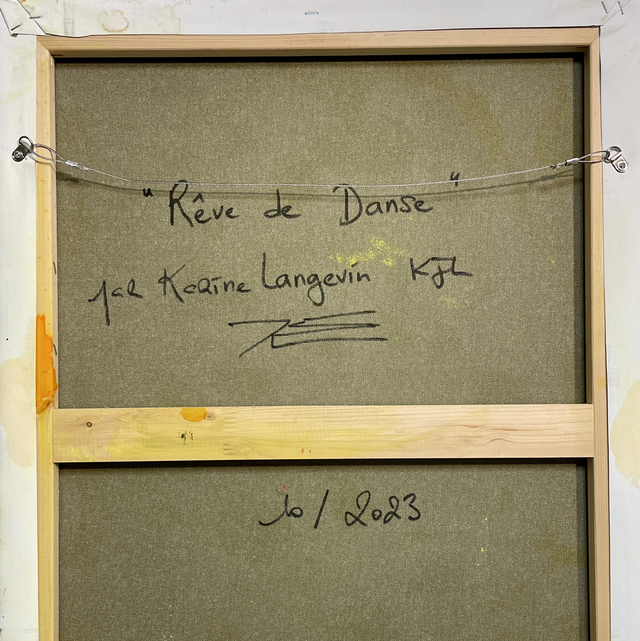 "Rêve de Danse"
par Karine Langevin KJL
10/2023